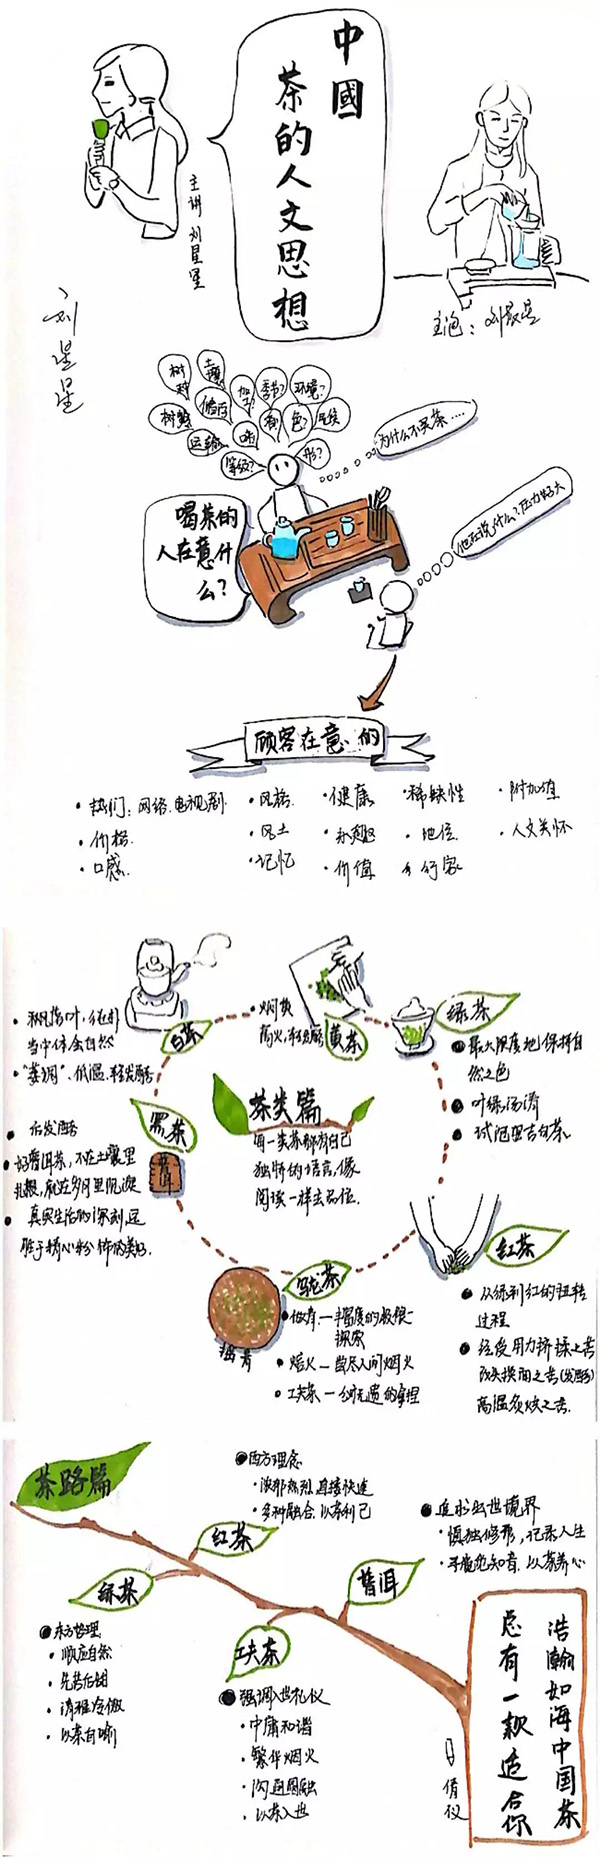 中國
茶的人文思想
主讲 刘星星
刘星星
主泡：刘
树种
土壤
加工?
季节?
环境?
储存
树龄
运输
香
色?
气候
等级?
形?
为什么不买茶....
喝茶的
人在意什
么?
他在说什么?压力好大
顾客在意的
·热门：网络.电视剧
·价格
·口感
·风格
·风土
·记忆
·健康
·价值
·稀缺性
·地位
·行家
·附加值
·人文关怀
白茶
当中体会自然
·"萎凋"、低温、轻发酵
焖黄
高火，轻发酵
黄茶
绿茶
●最大限度地保持自
然之色
●叶绿汤清
黑茶
●后发酵
●好普洱茶，不在土壤里
扎根，就在岁月里沉淀
●真实生活的深刻，远
胜于精心粉饰的美好.
普洱
茶类篇
每一类茶都有自己
独特的语言，像
阅读一样去品位.
乌龙茶
摇青
●做青一半
探索
●焙火一尝尽人间烟火
●工夫茶一
红茶
●从绿到红的扭转
过程
●经受用力挤揉之苦
改头换面之苦(发酵)
高温炙烤之苦.
茶路篇
红茶
●西方理念
·浓郁热烈 直接快速
·多种融合.以茶利己
绿茶
●东方哲理
·顺应自然
·先苦后甜
·清雅冷傲
·以茶自喻
普洱
●追求出世境界
·慎独修养，记录人生
·寻觅知音.以茶养心
工夫茶
●强调入世礼仪
·中庸和谐
·繁华烟火
·沟通圆融
·以茶入世
浩瀚如海中国茶
总有一款适合你